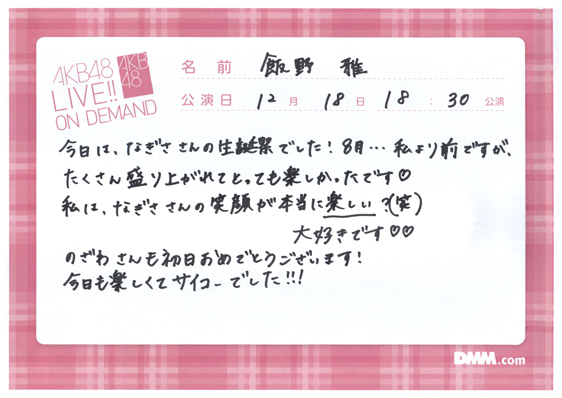 AKB48
LIVE!!
ON DEMAND
AKB
48
名前 飯野 雅
公演日 12月 18日 18:30公演
今日は、なぎささんの生誕祭でした！8月…私より前ですが、
たくさん盛り上がれてとっても楽しかったです♡
私は、なぎささんの笑顔が本当に楽しい?(笑)
大好きです♡♡
のざわさんも初日おめでとうございます！
今日も楽しくてサイコーでした!!!
DMM.com